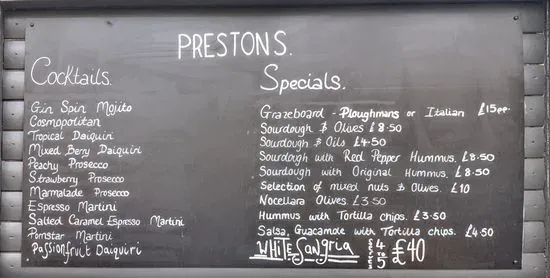 PRESTONS.
Cocktails.
Gin Spin Mojito
Cosmopolitan
Tropical Daiquiri
Mixed Berry Daiquiri
Peachy Prosecco
Strawberry Prosecco
Marmalade Prosecco
Espresso Martini
Salted Caramel Espresso Martini
Pornstar Martini
Passionfruit Daiquiri
Specials.
Grazeboard - Ploughmans or Italian £15pp.
Sourdough & Olives £8.50
Sourdough & Oils £4.50
Sourdough with Red Pepper Hummus. £8.50
Sourdough with Original Hummus. £8.50
Selection of mixed nuts & Olives. £10
Nocellara Olives £3.50
Hummus with Tortilla chips. £3.50
Salsa, Guacamole with Tortilla chips. £4.50
WHITE SANGRIA 4 TO 5 £40